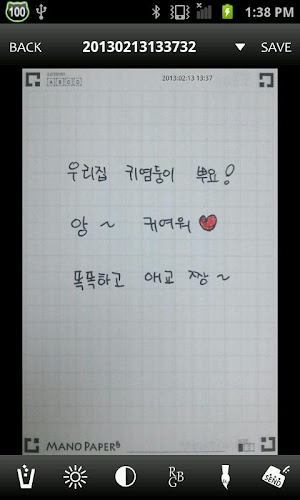 100 1:38 PM
BACK 20130213133732 SAVE
A B C D 2013.02.13 13:37
우리집 귀염둥이 뿌요!
앙~ 귀여워
똑똑하고 애교 짱~
MANO PAPER
R
G
B
SEND